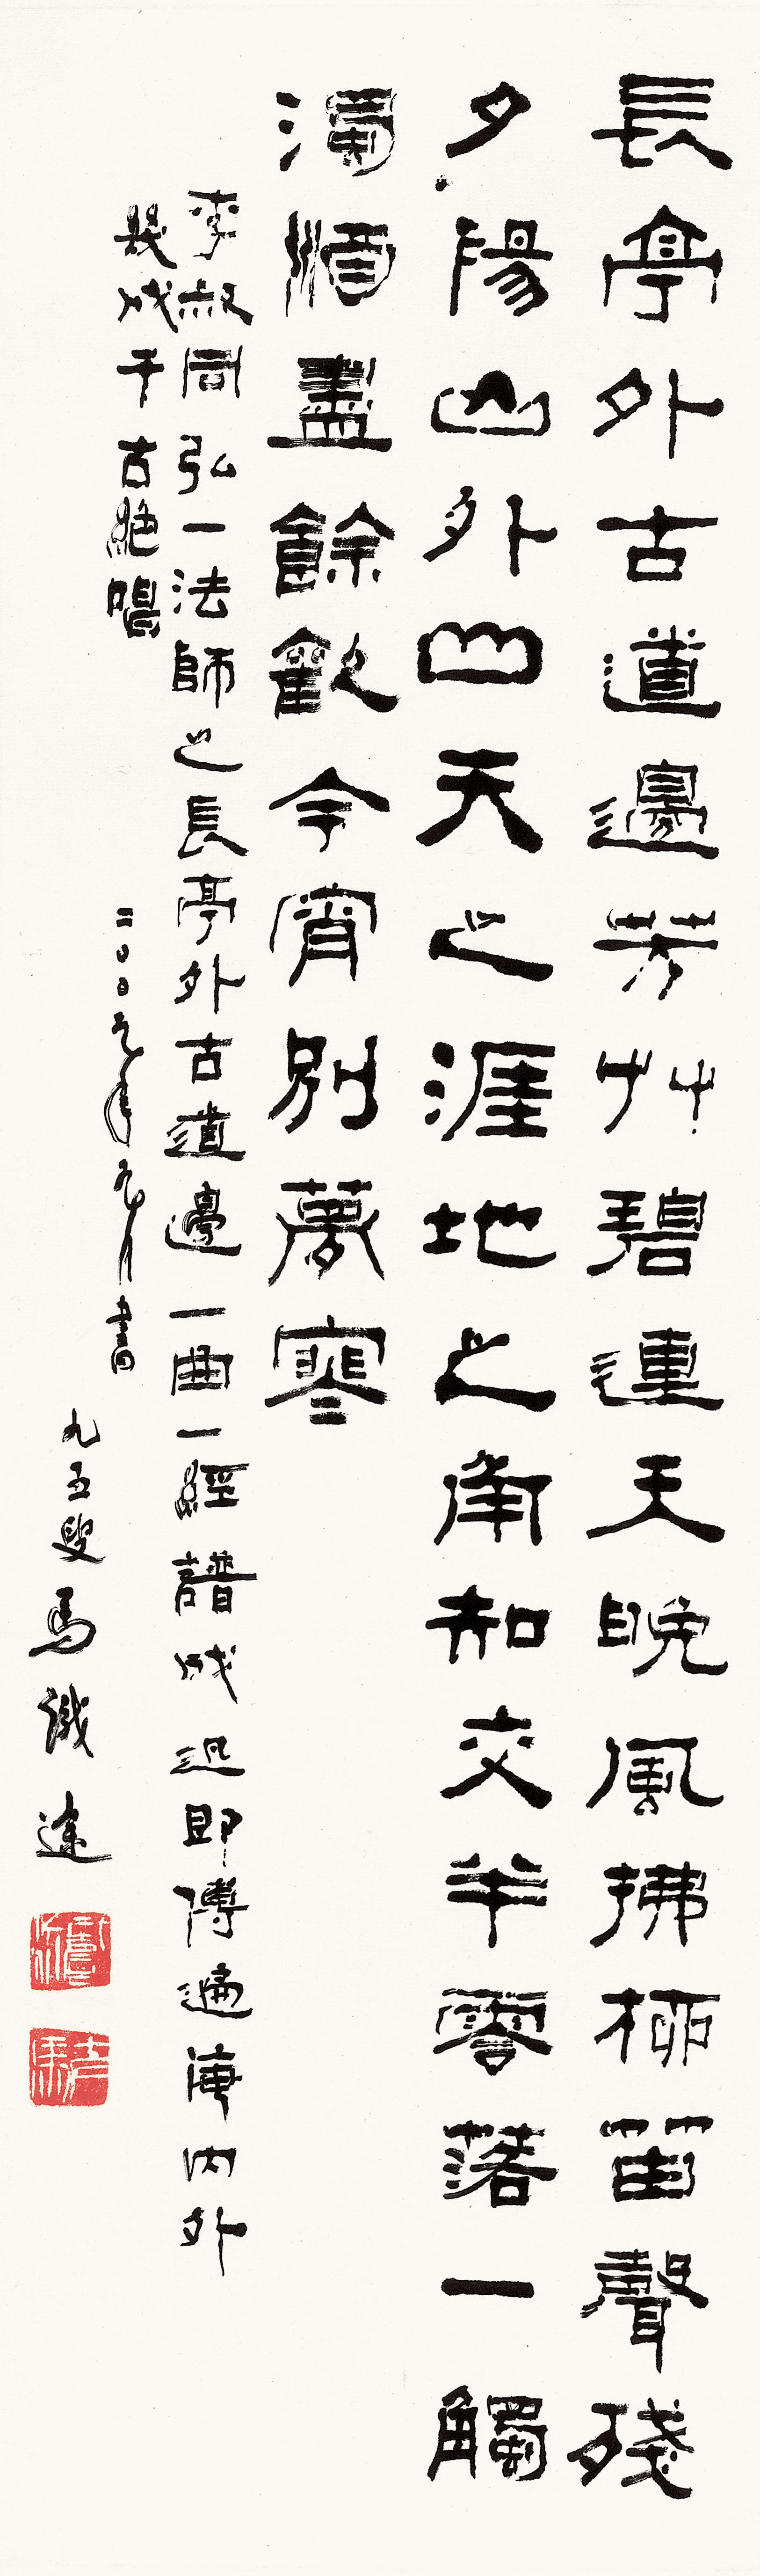 長亭外古道邊芳艸碧連天晚風拂柳笛聲殘
夕陽山外山天之涯地之角知交半零落一觸
濁酒盡餘歡今宵別夢寒
李叔同弘一法師之長亭外古道邊一曲一經譜成迅即傳遍海内外
幾成千古絕唱
二〇〇九年九月書
九五叟馬識途